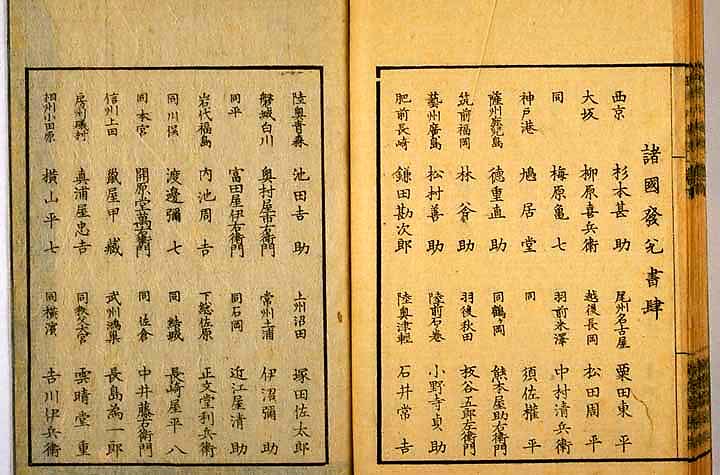 諸國發兌書肆
西京 杉本甚助
大坂 柳原喜兵衛
同 梅原亀七
神戸港 鳩居堂
薩州鹿児島 徳重直助
筑前福岡 林斧助
藝州廣島 松村善助
肥前長崎 鎌田勘次郎
尾州名古屋 栗田東平
越後長岡 松田周平
羽前米澤 中村清兵衛
同 須佐權平
同鶴ヶ岡 熊本屋助右衛門
羽後秋田 板谷五郎左衛門
陸前石巻 小野寺貞助
陸奥津輕 石井常吉
陸奥青森 池田吉助
磐城白川 奥村屋市右衛門
同平 富田屋伊右衛門
岩代福島 内池周吉
同川俣 渡邊彌七
同本宮 開原堂萬右衛門
信州上田 巖屋甲藏
房州礒村 真浦屋忠吉
相州小田原 横山平七
上州沼田 塚田佐太郎
常州土浦 伊沼彌助
同石岡 近江屋清助
下総佐原 正文堂利兵衛
同結城 長崎屋平八
同佐倉 中井藤右衛門
武州鴻巣 長島為一郎
同秩父大宮 雲晴堂重
同横濱 吉川伊兵衛